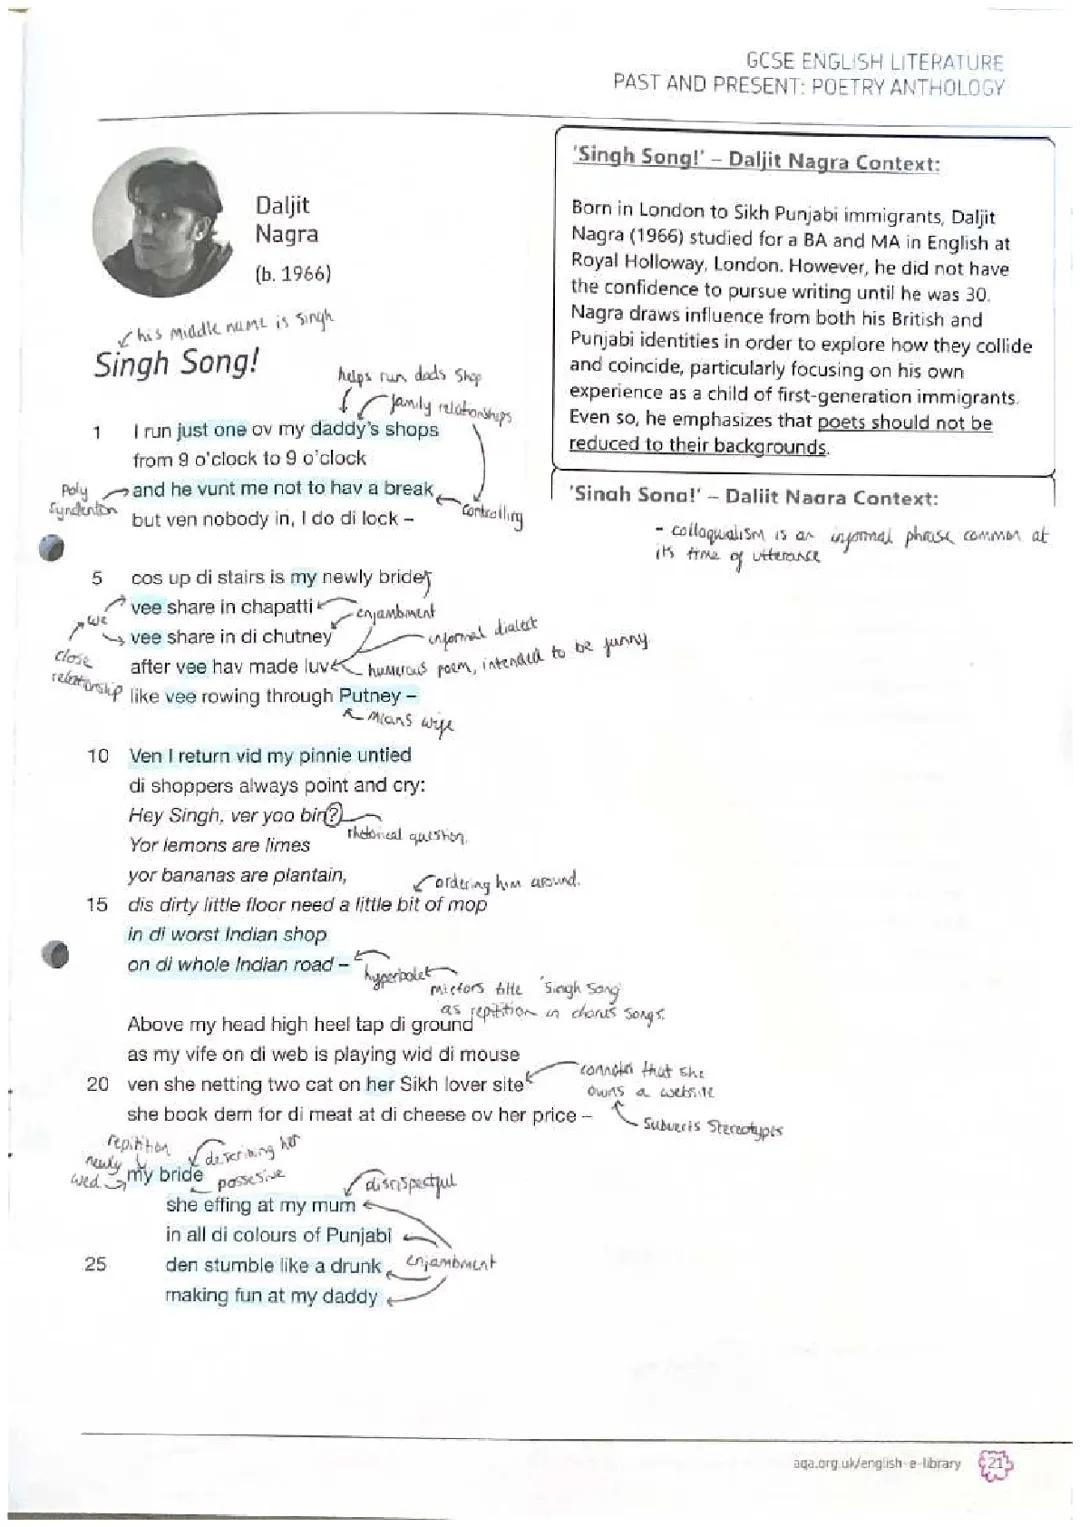 GCSE ENGLISH LITERATURE
PAST AND PRESENT: POETRY ANTHOLOGY
Daljit
Nagra
(b. 1966)
his middle name is Singh
Singh Song!
'Singh Song!' – Daljit Nagra Context:
Born in London to Sikh Punjabi immigrants, Daljit
Nagra (1966) studied for a BA and MA in English at
Royal Holloway, London. However, he did not have
the confidence to pursue writing until he was 30.
Nagra draws influence from both his British and
Punjabi identities in order to explore how they collide
and coincide, particularly focusing on his own
experience as a child of first-generation immigrants.
Even so, he emphasizes that poets should not be
reduced to their backgrounds.
'Singh Song!' – Daljit Nagra Context:
- colloqualism is an informal phrase common at
its time of utterance
helps run dads shop
family relationships
1 I run just one ov my daddy's shops
from 9 o'clock to 9 o'clock
Poly
Syndenton
and he vunt me not to hav a break
controlling
but ven nobody in, I do di lock –
5 cos up di stairs is my newly bride
vee share in chapatti
enjambment
we
vee share in di chutney
informal dialect
close
relationship
after vee hav made luv
humerous poem, intended to be funny
like vee rowing through Putney –
means wife
10 Ven I return vid my pinnie untied
di shoppers always point and cry:
Hey Singh, ver yoo bin?
rhetorical question
Yor lemons are limes
yor bananas are plantain,
ordering him around.
15 dis dirty little floor need a little bit of mop
in di worst Indian shop
on di whole Indian road –
hyperbole
mirrors title 'Singh Song'
as repitition in chorus songs.
Above my head high heel tap di ground
as my vife on di web is playing wid di mouse
20 ven she netting two cat on her Sikh lover site
connotes that she
owns a website
she book dem for di meat at di cheese ov her price –
Subverts Stereotypes
repitition
describing her
newly
wed
my bride
possesive
disrispectful
she effing at my mum
in all di colours of Punjabi
25 den stumble like a drunk
enjambment
making fun at my daddy
aqa.org.uk/english-e-library
21